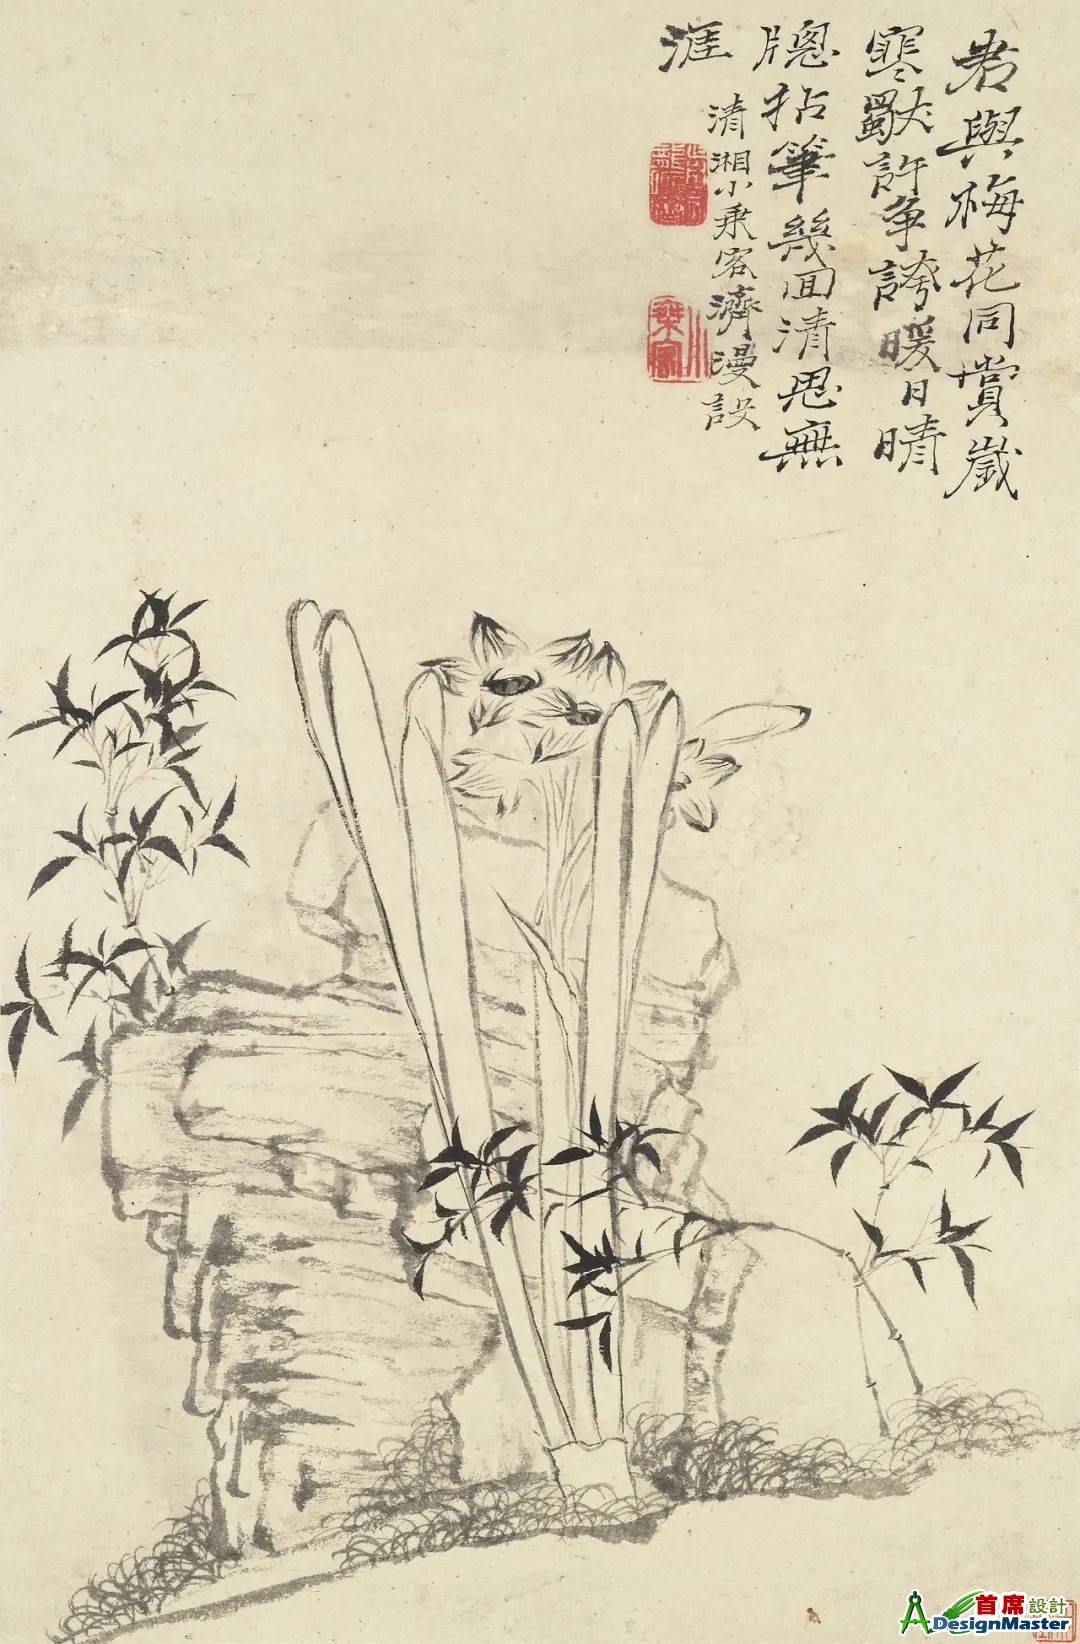 君與梅花同賞歲
寒獨許爭誇暖日晴
牕拈筆幾回清思無
涯
清湘小乗客濟漫設
小乘客
首席設計
ADesignMaster